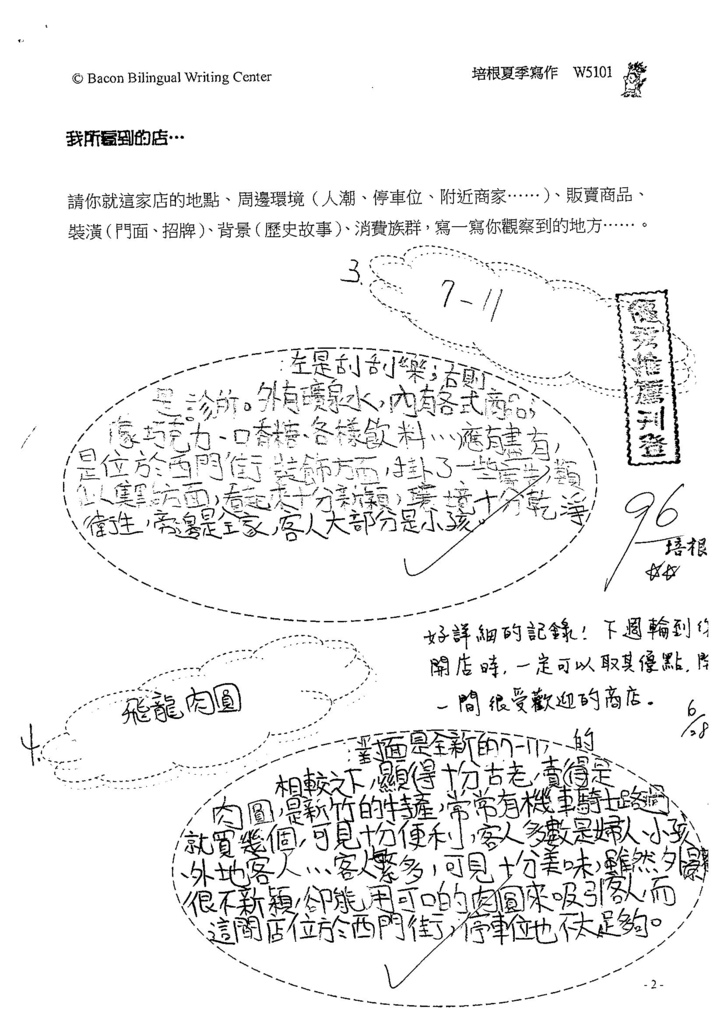 © Bacon Bilingual Writing Center
培根夏季寫作 W5101
我所看到的店…
請你就這家店的地點、周邊環境（人潮、停車位、附近商家……）、販賣商品、
裝潢（門面、招牌）、背景（歷史故事）、消費族群，寫一寫你觀察到的地方……。
3.
7-11
優秀推薦刊登
左是刮刮樂；右則
是診所。外有礦泉水，內有各式商品；
像巧克力、口香糖、各樣飲料…應有盡有，
是位於西門街，裝飾方面，掛了一些
方面，看起來十分新穎，環境十分乾淨
衛生，旁邊是全家，客人大部分是小孩。
96
培根
好詳細的記錄！下週輪到你
開店時，一定可以取其優點，開
一間很受歡迎的商店。
6/28
4.
飛龍肉圓
對面是全新的7-11，的
相較之下，顯得十分古老，賣得是
肉圓，是新竹的特產，常常有機車騎士路過
就買幾個，可見十分便利，客人多數是婦人、小孩
、外地客人…客人繁多，可見十分美味，雖然外觀
很不新穎，卻能用可口的肉圓來吸引客人，而
這間店位於西門街，停車位也不太足夠。
- 2 -